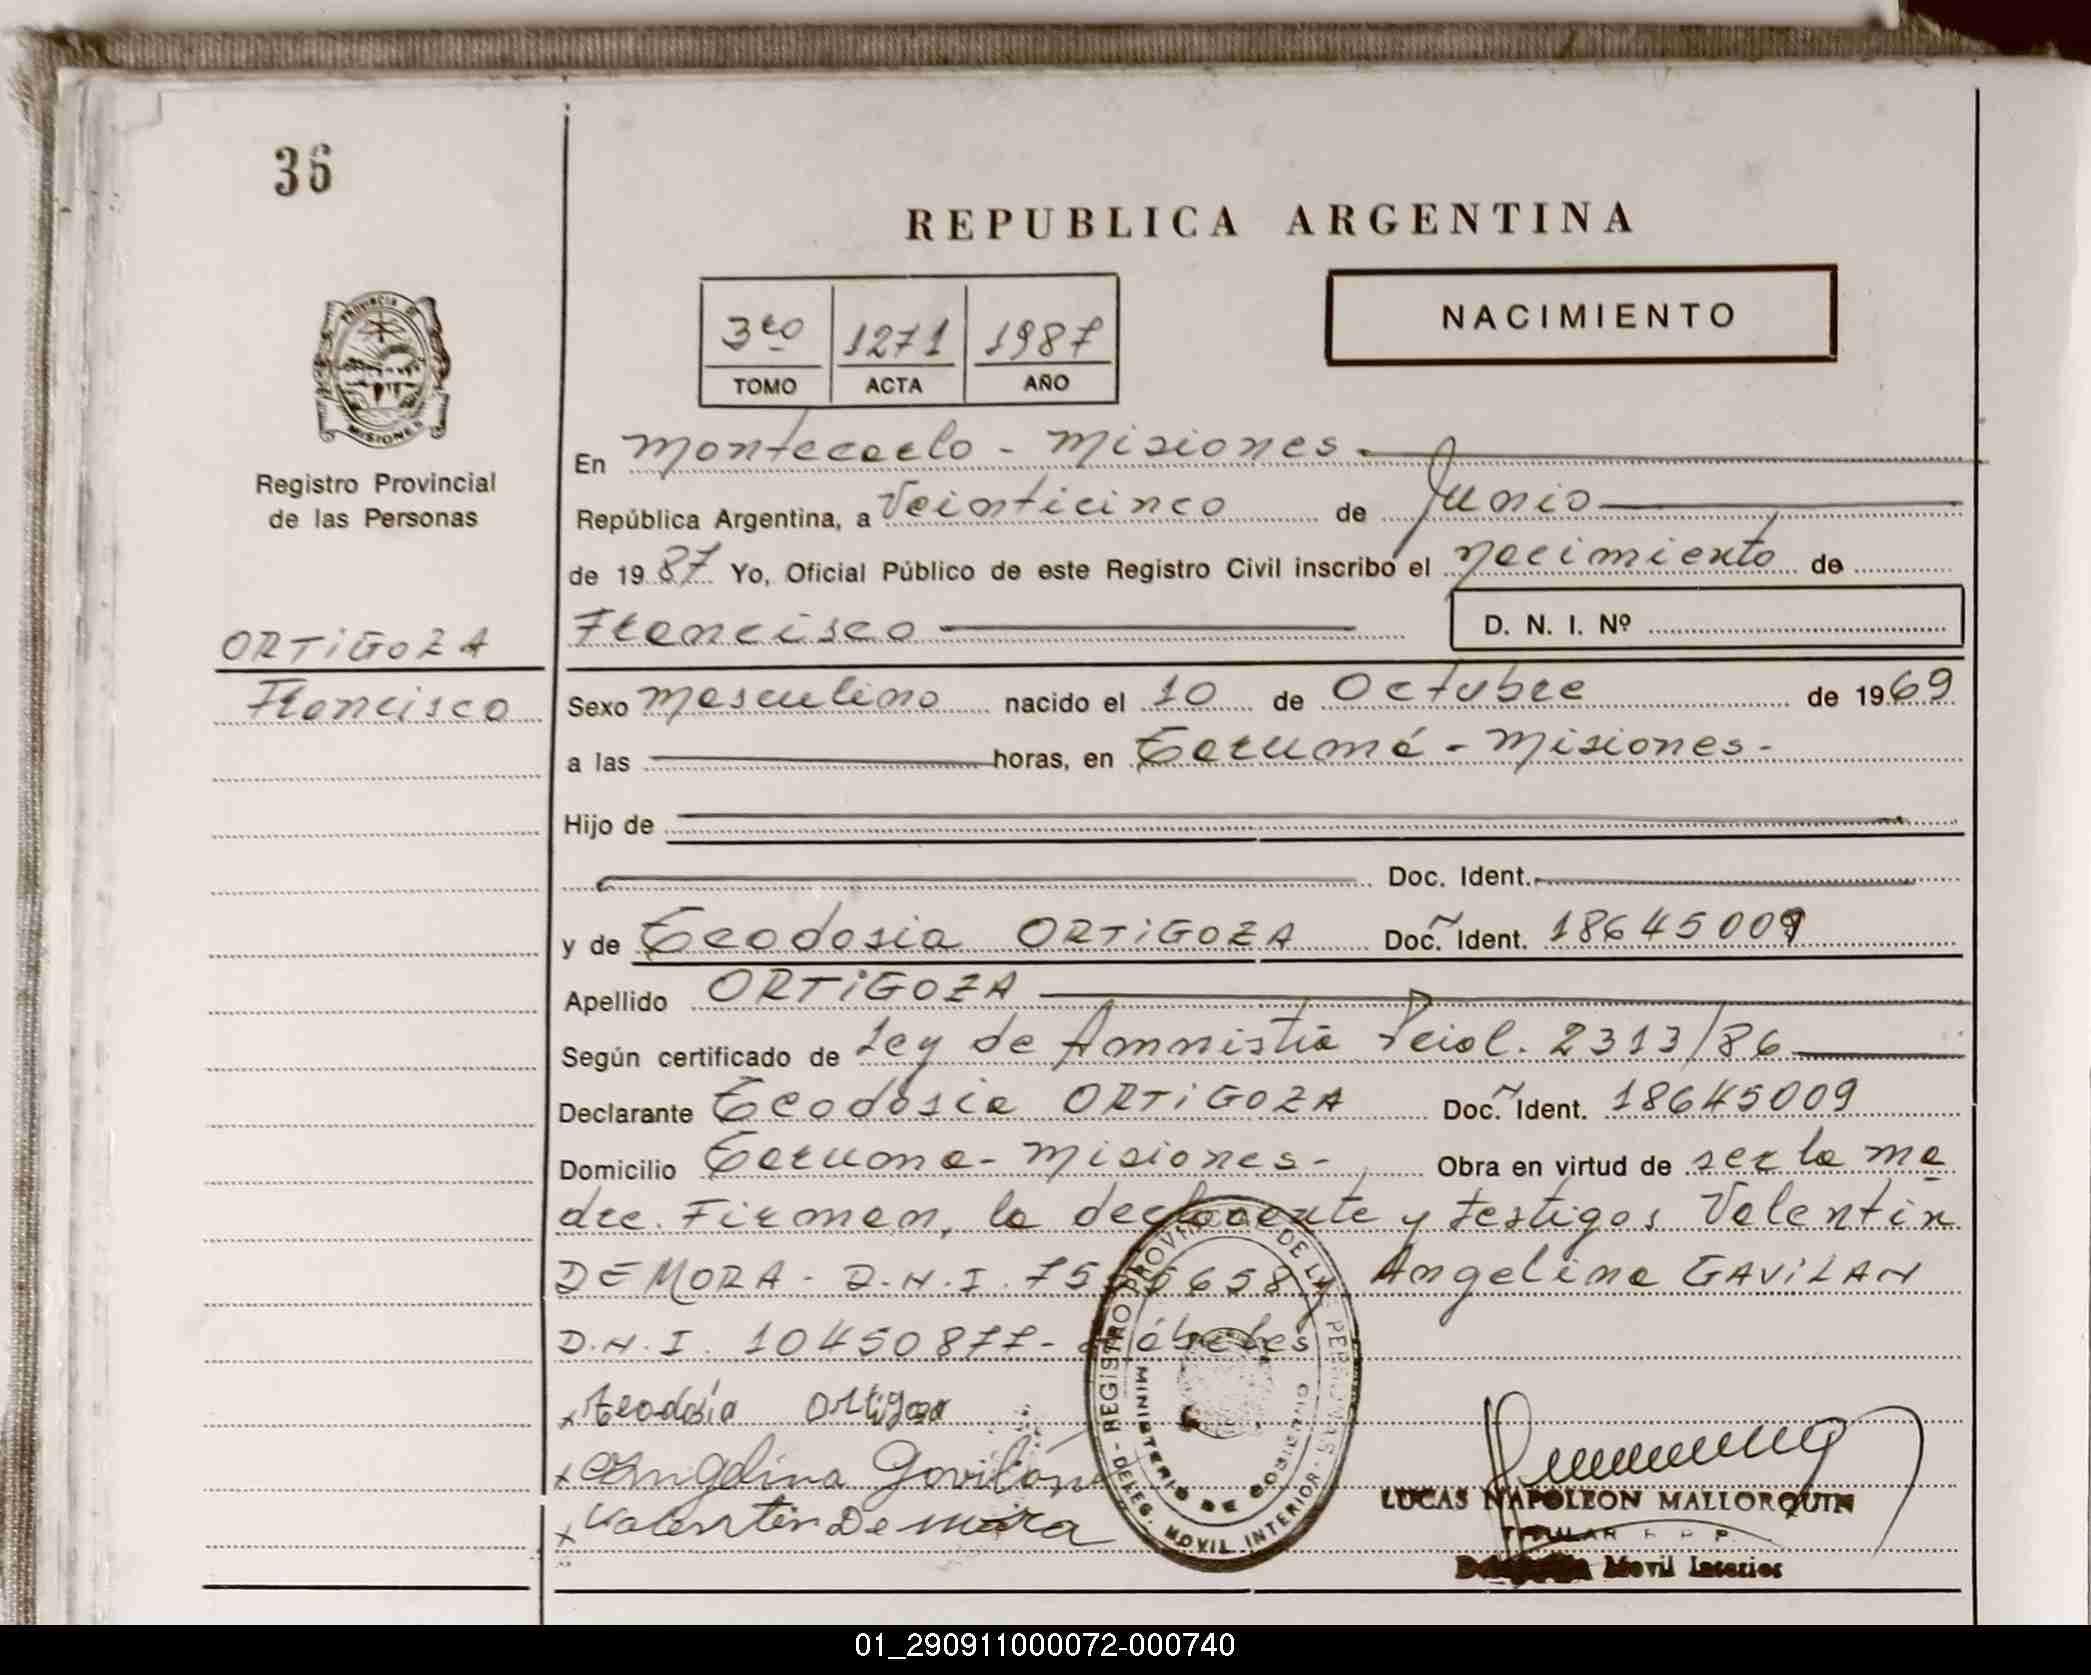 36
REPUBLICA ARGENTINA
NACIMIENTO
3ro 1271 1987
TOMO ACTA AÑO
PROVINCIA DE MISIONES
Registro Provincial
de las Personas
ORTiGOZA
Francisco
En Montecarlo - Misiones.
República Argentina, a Veinticinco de Junio
de 1987 Yo, Oficial Público de este Registro Civil inscribo el nacimiento de
Francisco D. N. I. Nº
Sexo Masculino nacido el 10 de Octubre de 1969
a las horas, en Taruma - Misiones-
Hijo de
Doc. Ident.
y de Teodosia ORTiGOZA Doc. Ident. 18645009
Apellido ORTiGOZA
Según certificado de Ley de Amnistia Pcial. 2313/86
Declarante Teodosia ORTiGOZA Doc. Ident. 18645009
Domicilio Taruma - Misiones- Obra en virtud de ser la ma
dre. Firman, la declarante y testigos Valentin
DEMORA - D.N.I. Angelina GAViLAN
D.N.I. 10450877-
x teodosia Ortigoza
x Angelina Gavilán
x Valentin De mora
REGISTRO PROVINCIAL DE LAS PERSONAS - DELEG. MOVIL INTERIOR -
MINISTERIO DE GOBIERNO
LUCAS NAPOLEON MALLORQUIN
TITULAR R. P. P.
Movil Interior
01_290911000072-000740